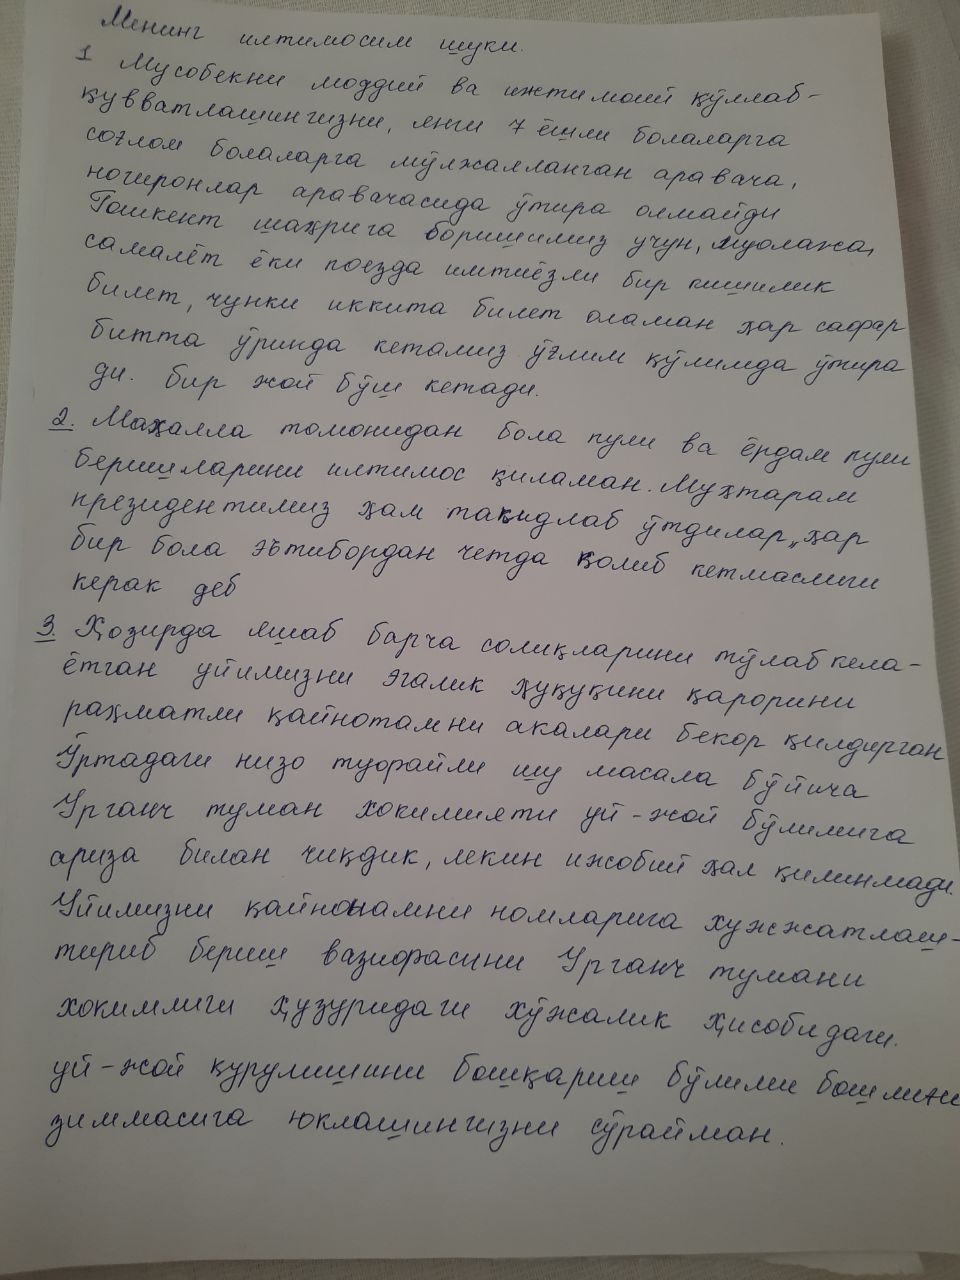 Менинг илтимосим шуки.
1 Мусобекни моддий ва ижтимоий қўллаб-
қувватлашингизни, янги 7 ёшли болаларга
соғлом болаларга мўлжалланган аравача,
ногиронлар аравачасида ўтира олмайди
Тошкент шаҳрига боришимиз учун, муолажа,
самалёт ёки поезда имтиёзли бир кишилик
билет, чунки иккита билет оламан ҳар сафар
битта ўринда кетамиз ўғлим қўлимда ўтира
ди. бир жой бўш кетади.
2. Маҳалла томонидан бола пули ва ёрдам пули
беришларини илтимос қиламан. Муҳтарам
президентимиз ҳам такидлаб ўтдилар „ҳар
бир бола эътибордан четда қолиб кетмаслиги
керак деб
3. Ҳозирда яшаб барча солиқларини тўлаб кела-
ётган уйимизни эгалик ҳуқуқини қарорини
раҳматли қайнотамни акалари бекор қилдирган
Ўртадаги низо туфайли шу масала бўйича
Урганч туман хокимияти уй-жой бўлимига
ариза билан чиқдик, лекин ижобий ҳал қилинмади.
Уйимизни қайнонамни номларига хужжатлаш-
тириб бериш вазифасини Урганч тумани
хокимлиги ҳузуридаги хўжалик ҳисобидаги.
уй-жой қурулишини бошқариш бўлими бошлиғи
зиммасига юклашингизни сўрайман.